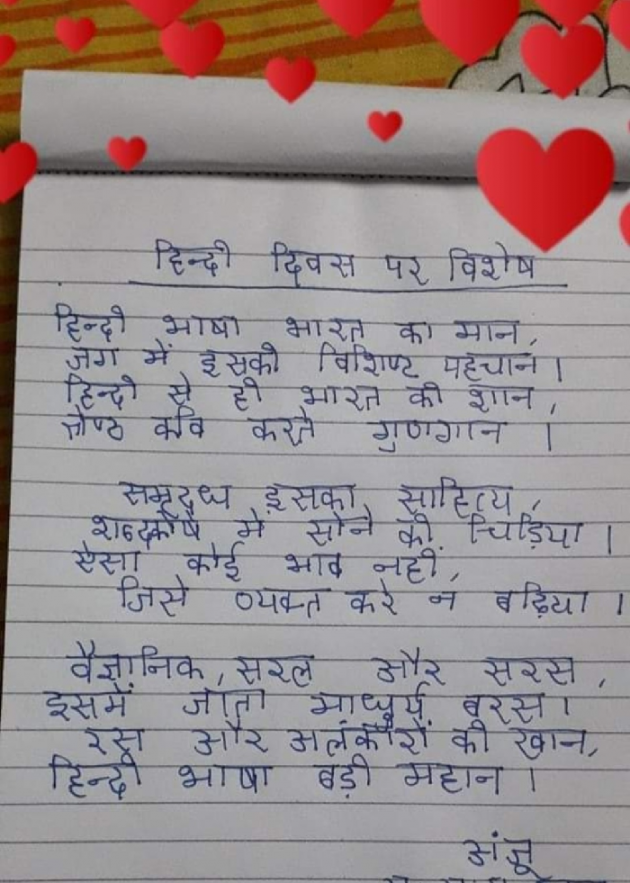 हिन्दी दिवस पर विशेष
हिन्दी भाषा भारत का मान,
जग में इसकी विशिष्ट पहचान।
हिन्दी से ही भारत की शान,
श्रेष्ठ कवि करते गुणगान ।
समृद्ध इसका साहित्य,
शब्दकोष में सोने की चिड़िया ।
ऐसा कोई भाव नहीं,
जिसे व्यक्त करे न बढ़िया ।
वैज्ञानिक, सरल और सरस,
इसमें जाता माधुर्य बरस।
रस और अलंकारों की खान,
हिन्दी भाषा बड़ी महान ।
अंजू